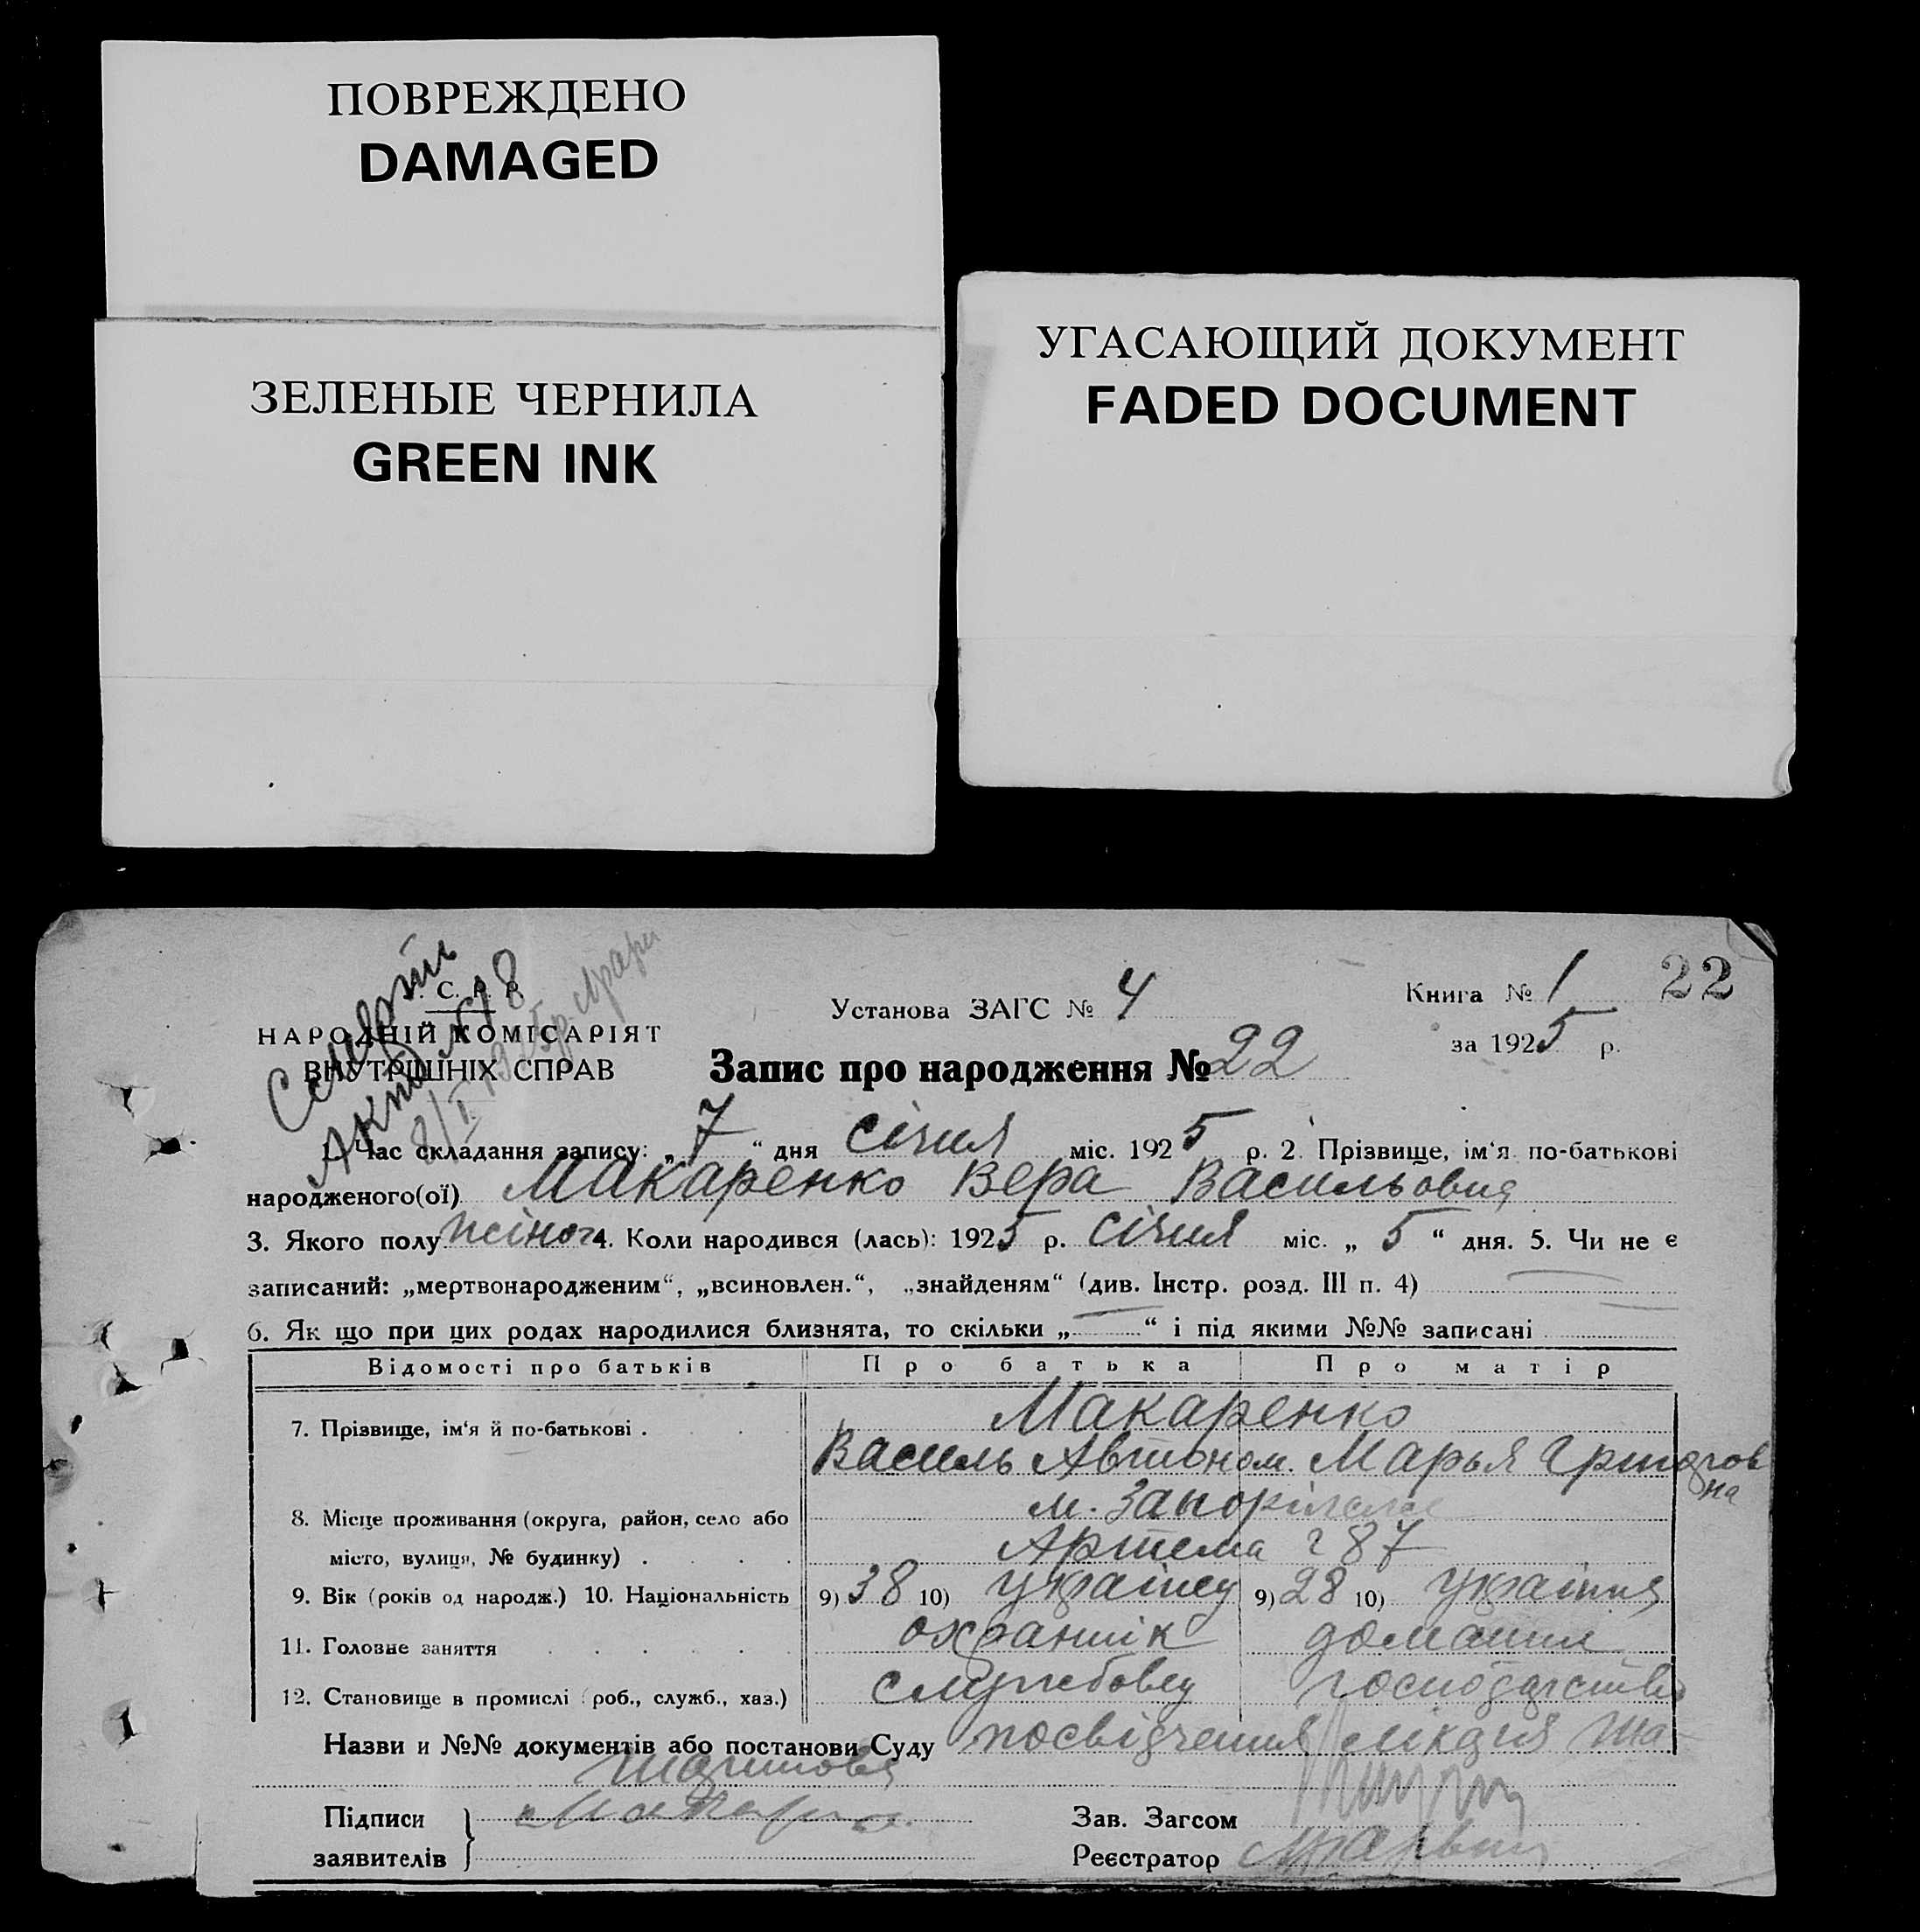 ПОВРЕЖДЕНО
DAMAGED
ЗЕЛЕНЫЕ ЧЕРНИЛА
GREEN INK
УГАСАЮЩИЙ ДОКУМЕНТ
FADED DOCUMENT
Смерть
Акт № 18
8/I 1925 р.
С. Р. Р.
НАРОДНІЙ КОМІСАРІЯТ
ВНУТРІШНІХ СПРАВ
Установа ЗАГС № 4
Книга № 1
22
за 1925 р.
Запис про народження № 22
1. Час складання запису: „7“ дня січня міс. 1925 р. 2. Прізвище, ім‘я по-батькові
народженого(ої) Макаренко Вера Васильовня
3. Якого полу жіноч 4. Коли народився (лась): 1925 р. січня міс. „5“ дня. 5. Чи не є
записаний: „мертвонародженим“, „всиновлен.“, „знайденям“ (див. Інстр. розд. III п. 4)
6. Як що при цих родах народилися близнята, то скільки „—“ і під якими №№ записані
Відомості про батьків Про батька Про матір
7. Прізвище, ім‘я й по-батькові . Макаренко
Василь Автоном. Марья Григоров
на
8. Місце проживання (округа, район, село або м. Запоріжже
місто, вулиця, № будинку) . Артема 87
9. Вік (років од народж.) 10. Національність 9) 38 10) українец 9) 28 10) україння
11. Головне заняття охранник домашне
12. Становище в промислі (роб., служб., хаз.) службовец господарство
Назви и №№ документів або постанови Суду посвідчення лікаря
Підписи
заявителів
Зав. Загсом
Реєстратор